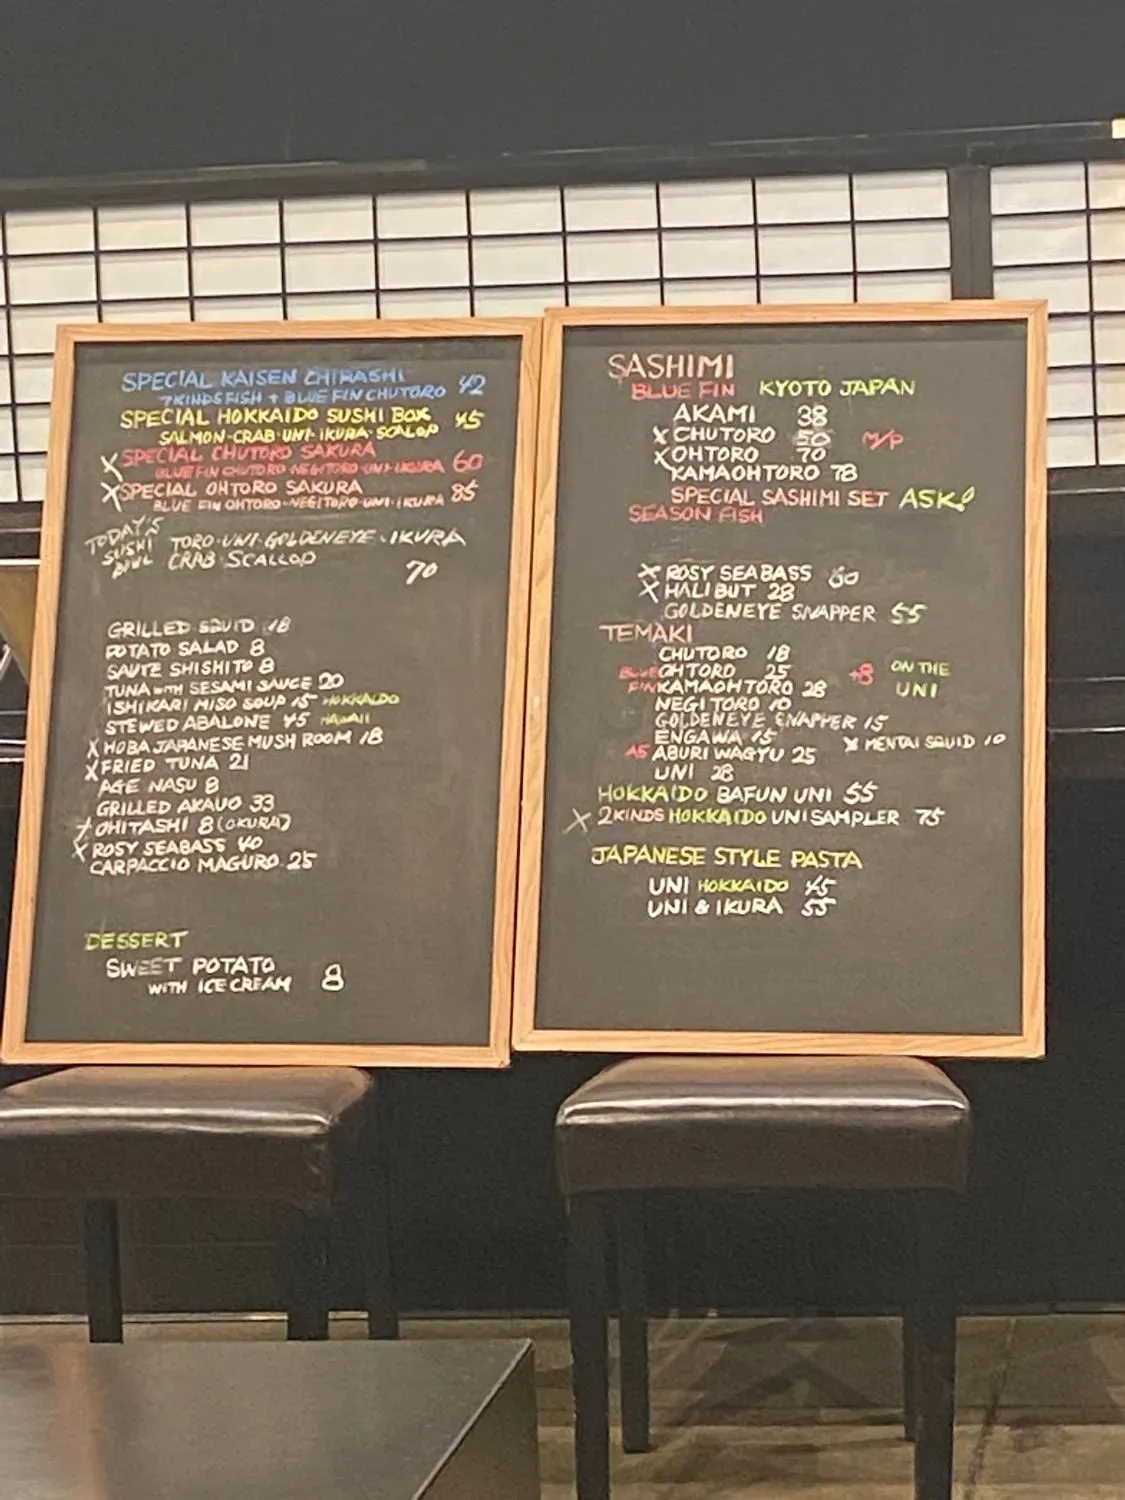 SPECIAL KAISEN CHIRASHI
7 KINDS FISH + BLUE FIN CHUTORO 42
SPECIAL HOKKAIDO SUSHI BOX 45
SALMON·CRAB·UNI·IKURA·SCALOP
X SPECIAL CHUTORO SAKURA
BLUE FIN CHUTORO·NEGITORO·UNI·IKURA 60
X SPECIAL OHTORO SAKURA 85
BLUE FIN OHTORO·NEGITORO·UNI·IKURA
TODAY'S SUSHI BOWL
TORO·UNI·GOLDENEYE·IKURA
CRAB·SCALLOP
70
GRILLED SQUID 18
POTATO SALAD 8
SAUTE SHISHITO 8
TUNA WITH SESAMI SAUCE 20
ISHIKARI MISO SOUP 15 HOKKAIDO
STEWED ABALONE 45 HAWAII
X HOBA JAPANESE MUSHROOM 18
X FRIED TUNA 21
AGE NASU 8
GRILLED AKAUO 33
X OHITASHI 8 (OKURA)
X ROSY SEABASS 40
CARPACCIO MAGURO 25
DESSERT
SWEET POTATO
WITH ICE CREAM 8
SASHIMI
BLUE FIN KYOTO JAPAN
AKAMI 38
X CHUTORO 50 M/P
X OHTORO 70
KAMAOHTORO 78
SPECIAL SASHIMI SET ASK!
SEASON FISH
X ROSY SEABASS 60
X HALIBUT 28
GOLDENEYE SNAPPER 55
TEMAKI
CHUTORO 18
BLUE OHTORO 25 +8 ON THE
FIN KAMAOHTORO 28 UNI
NEGITORO 10
GOLDENEYE SNAPPER 15
ENGAWA 15 X MENTAI SQUID 10
A5 ABURI WAGYU 25
UNI 28
HOKKAIDO BAFUN UNI 55
X 2KINDS HOKKAIDO UNI SAMPLER 75
JAPANESE STYLE PASTA
UNI HOKKAIDO 45
UNI & IKURA 55